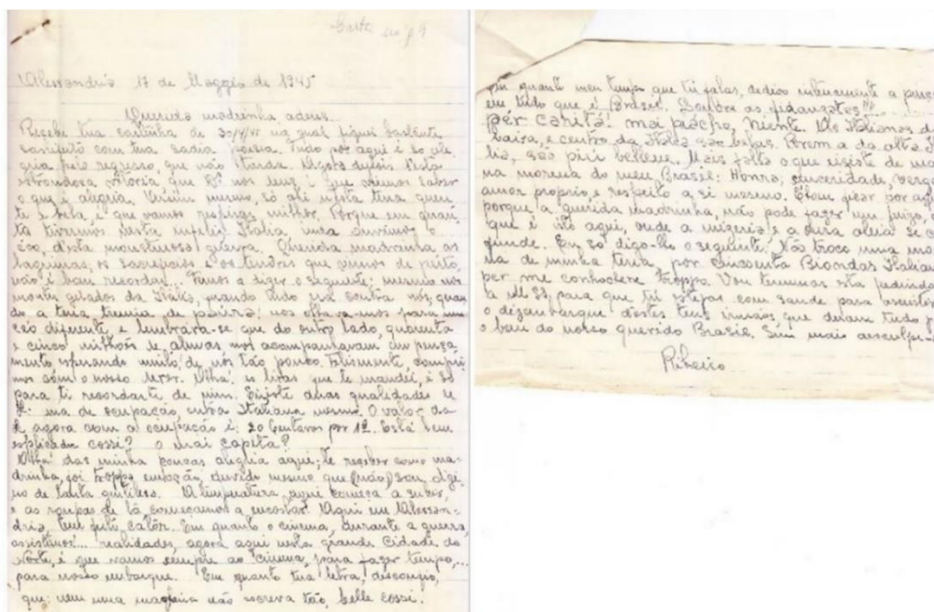 Carta
Alessandria 17 de Maggio de 1945
Querida madrinha adeus.
Recebi tua cartinha de 30/4/45 na qual fiquei bastante
satisfeito com tua sadia poesia. Tudo por aqui é so ale
gria pelo regresso, que não tarda. Agora depois desta
estrondosa vitoria, que D'us nos deu, é que vamos saber
o que é alegria. mesmo, só ahi nesta terra quen
te e bela, é que vamos respirar melhor. Porque em quan
ta tivemos nesta infeliz Italia inda ouvimos o
éco, d'esta monstruosa guerra. Querida madrinha as
lagrimas, os sacrificios e os que vimos de perto,
não é bom recordar. Temos a dizer o seguinte: mesmo nos
montes gelados da Italia, quando tudo era contra nós, quan
do a terra, tremia de pavôr; nos olhavamos para uma
ção diferente, e lembrara-se que do outro lado, quarenta
e cinco milhões de almas nos acompanhavam em pensa
mento, esperando muito, de nós tão pouco. Felismente, cumpri
mos com o nosso dever. Olha! as liras que te mandei, é só
para ti recordarte de mim. Existe duas qualidades de
£: uma de ocupação, outra Italiana mesmo. O valor da
£ agora com a ocupação é: 20 Centavos por 1£. Está bem
esplicado cossi? o mai capita?
Olha! das minha poucas alegria aqui; te receber como ma
drinha, foi troppo emoção, duvido mesmo que (não) sou digi
no de tanta gentileza. A temperatura, aqui começa a subir,
e as roupas de lã, começamos a encostar. Aqui em Alessan-
dria, tem feito calôr. Em quanto o cinema, durante a guerra,
assistimos... realidades, agora aqui nesta grande Cidade do
Norte, é que vamos sempre ao Cinema, para fazer tempo,...
para nosso embarque. Em quanto tua letra, desconfio,
que: nem uma maquina não escreva tão, belle cossi.
por quanto meu tempo que tú falas, dedico inteiramente a
em tudo que é Brasil. Sombre as fidanzatas!!!
per carita! mai piache, niente. As Italianas da
baixa, e centro da Italia são belas. Porem a da alta
lia, são piu bellene. Mais falta o que existe de
na morena do meu Brasil: Honra, cinceridade,
amor proprio, e respeito a si mesmo. Estou
porque a querida madrinha, não pode fazer um juizo, o
que é isto aqui, onde a mizeria e a dura
funde. Eu so digo-lhe o seguinte: Não troco uma
na de minha terra por cincoenta Biondas Italiana
per me conhochere troppo. Vou terminar esta pedindo
para que tú estejas com saude para assistir
o dezembarque destes teus irmãos que deram tudo p
o bem do nosso querido Brasil. Sem mais
Ribeiro